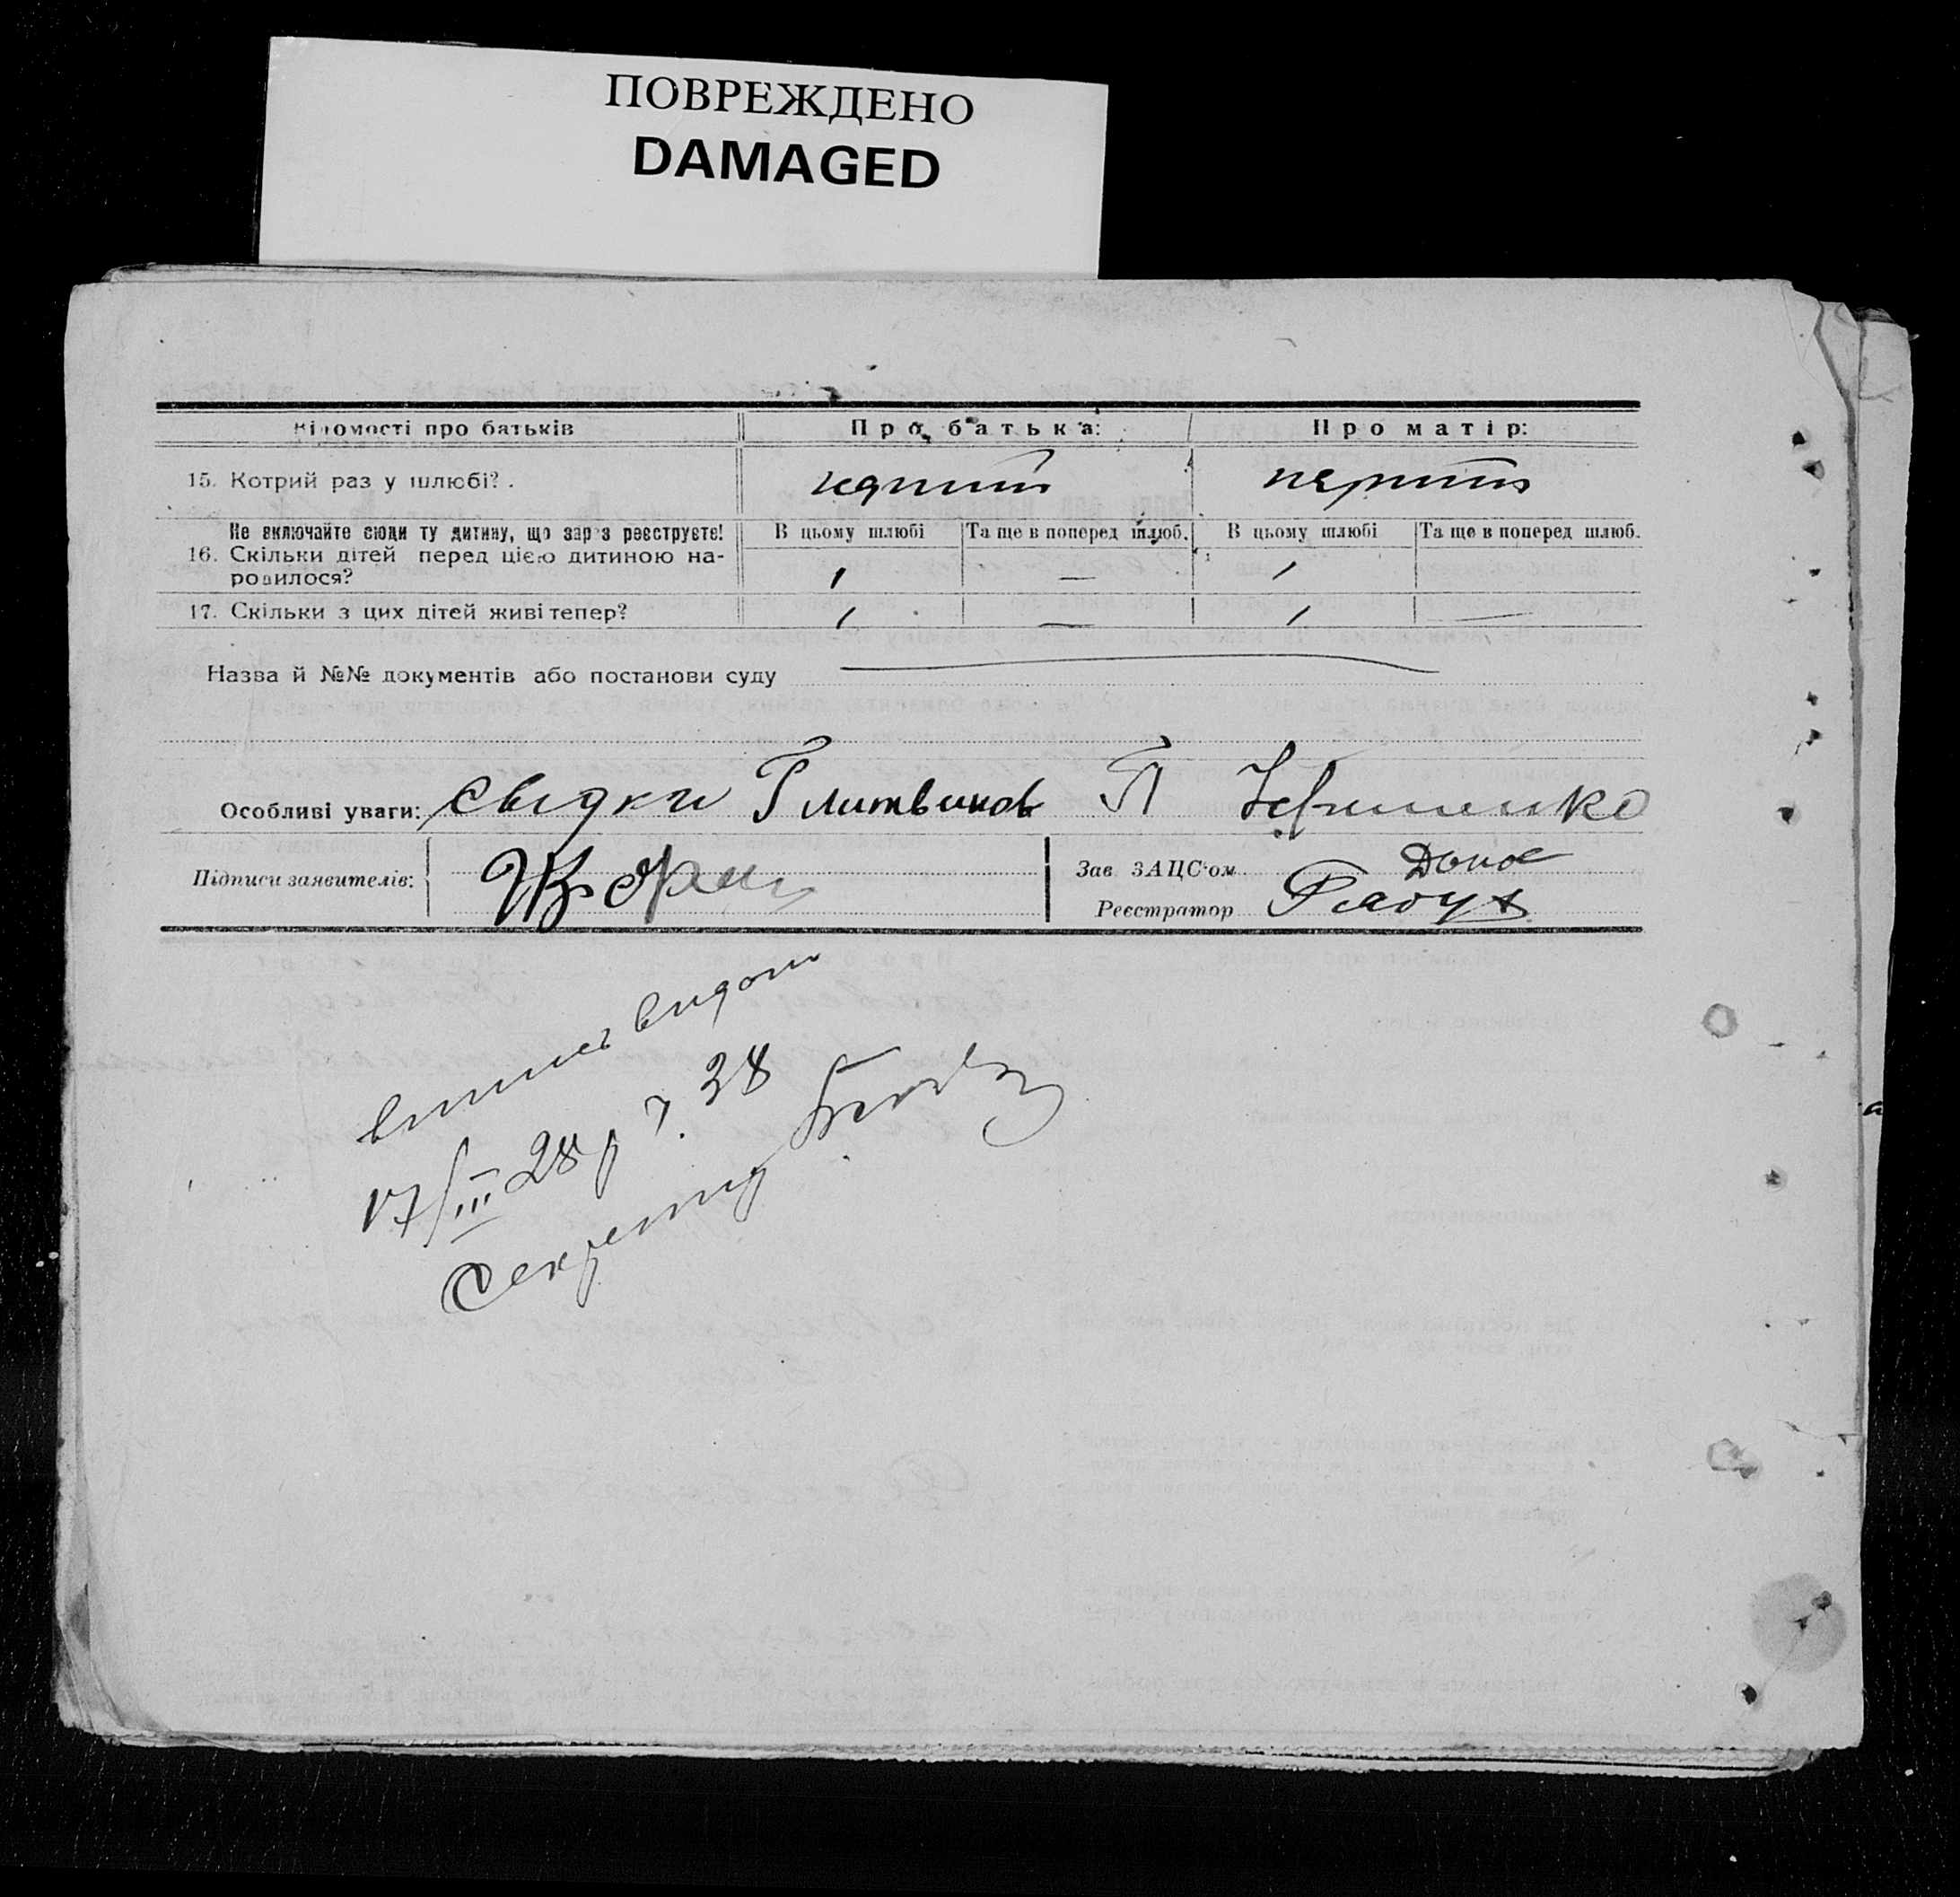 ПОВРЕЖДЕНО
DAMAGED
Відомості про батьків Про батька: Про матір:
15. Котрий раз у шлюбі? .
Не включайте сюди ту дитину, що зараз реєструєте! В цьому шлюбі Та ще в поперед шлюб. В цьому шлюбі Та ще в поперед шлюб.
16. Скільки дітей перед цією дитиною на-
родилося? 1 — 1
17. Скільки з цих дітей живі тепер? 1 — 1 —
Назва й №№ документів або постанови суду
Особливі уваги: свідки Г Литвинов П
Підписи заявителів:
Зав ЗАЦС'ом
Реєстратор
видот
17/III 28 р 7. 38
Секретар